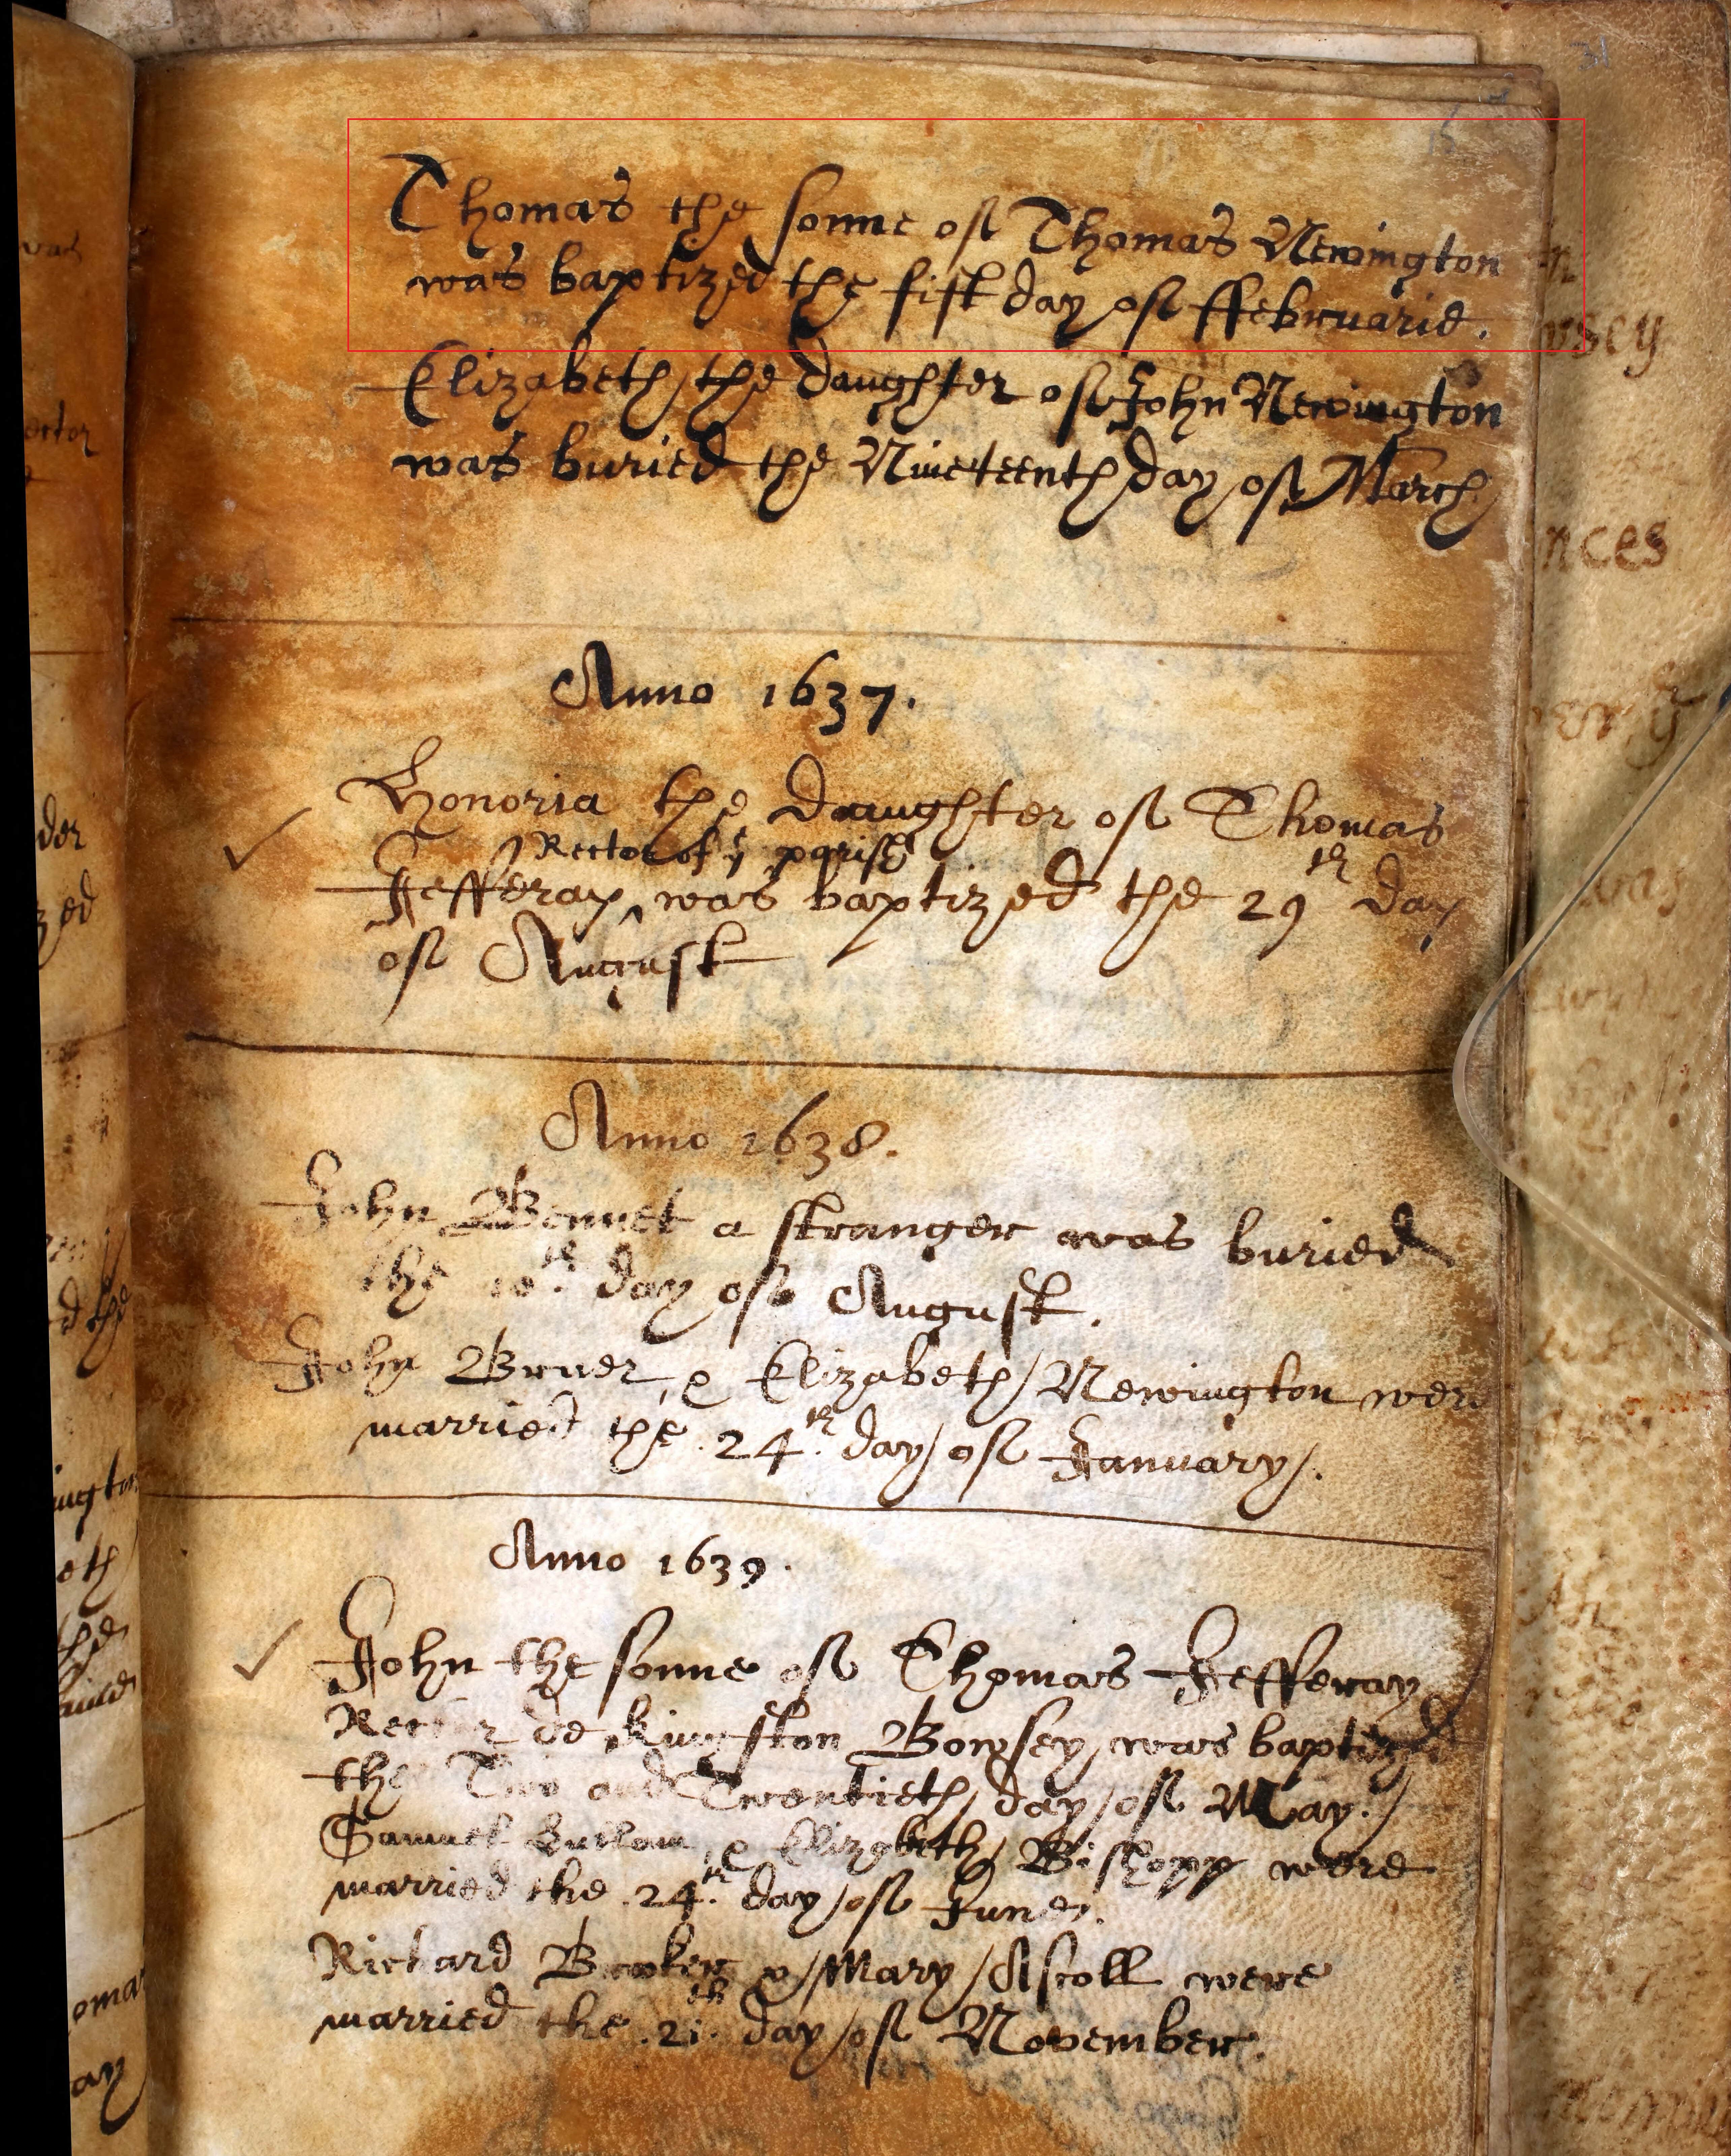 Thomas the sonne of Thomas Newington
was baptized the fift day of ffebruarie.
Elizabeth the daughter of John Newington
was buried the Nineteenth day of March
Anno 1637.
Honoria the daughter of Thomas
Rector of yͤ parish
Jefferay ^ was baptized the 29th day
of August
Anno 1638.
John Bennet a stranger was buried
the 10th. day of August.
John Bruer, & Elizabeth Newington were
married the .24th. day of January.
Anno 1639.
John the sonne of Thomas Jefferay
Rector de Kingston Bowsey was baptized
the Two and Twentieth day of May.
Samuel & Elizabeth Bishopp were
married the .24th. day of June.
Richard & Mary Ascoll were
married the .21th. day of November.